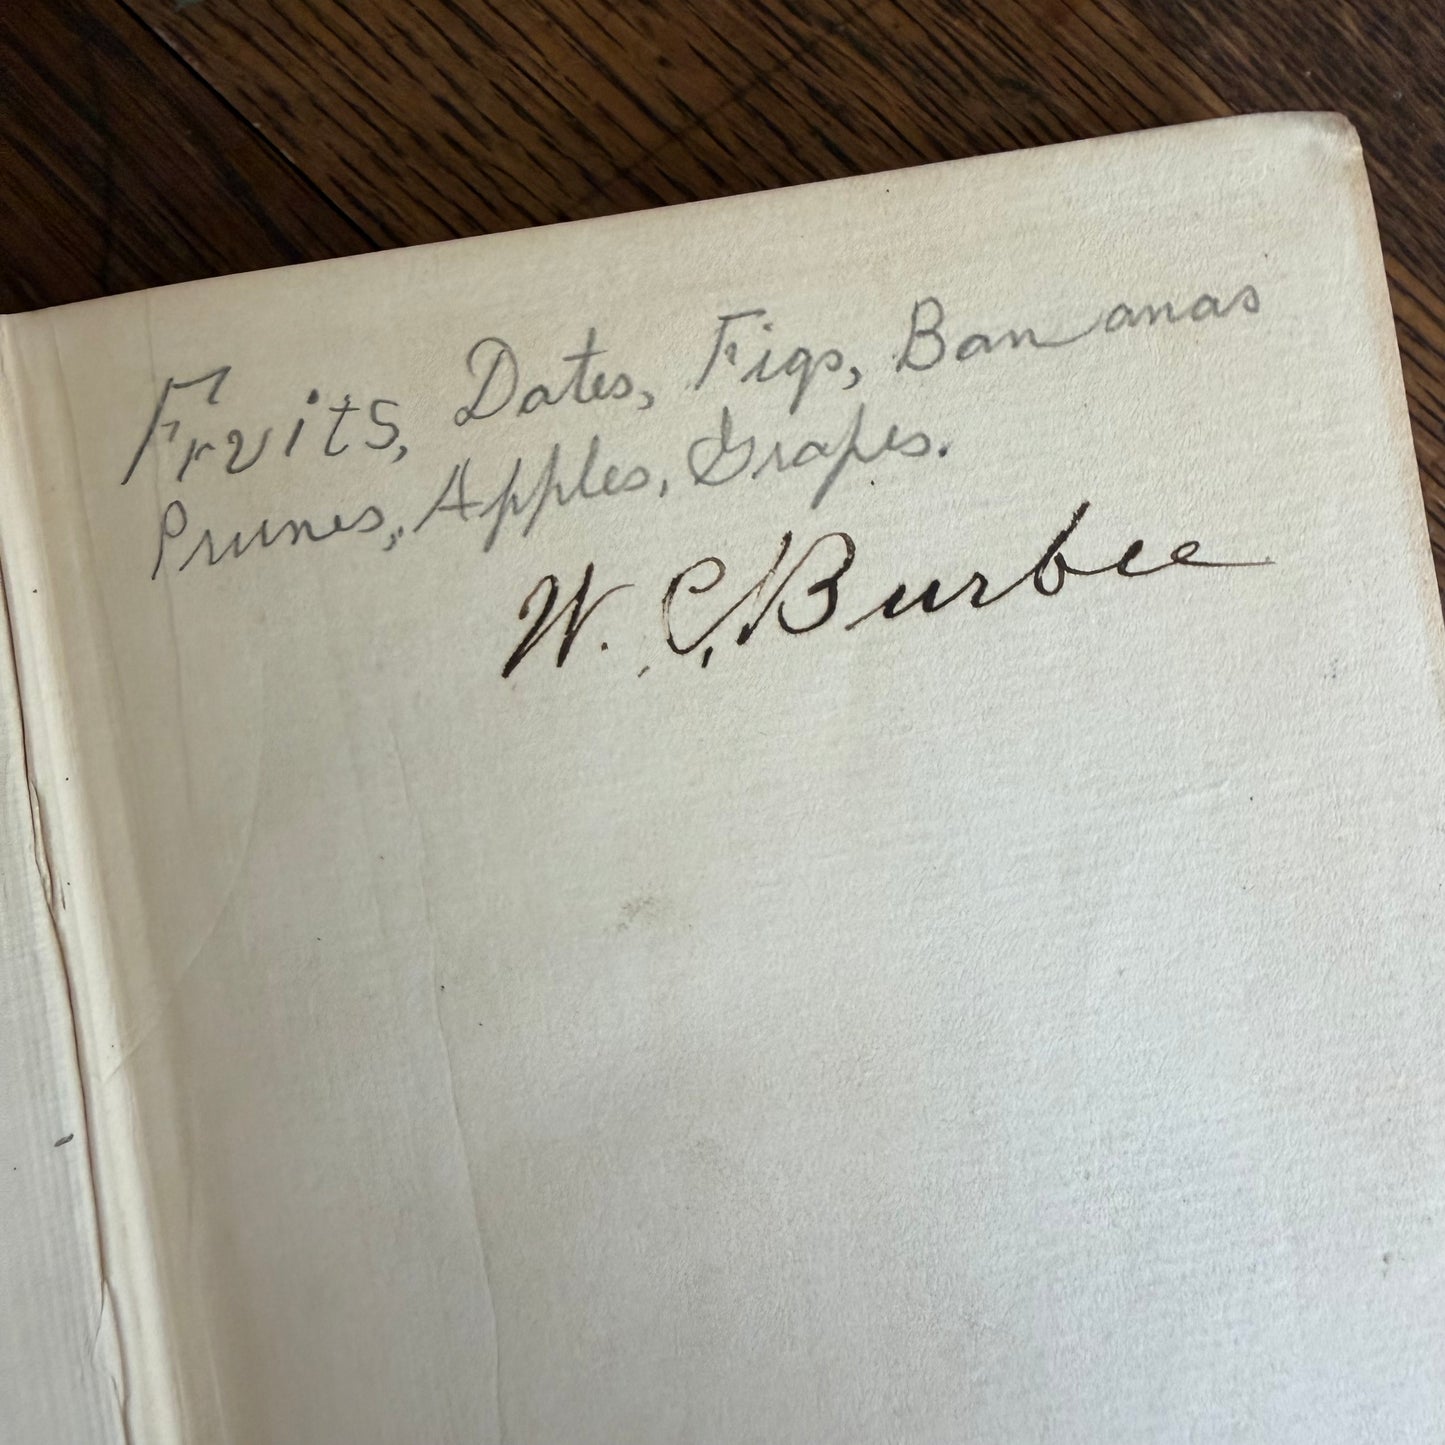 Fruits, Dates, Figs, Bananas
Prunes, Apples, Grapes.
W. C. Burbee